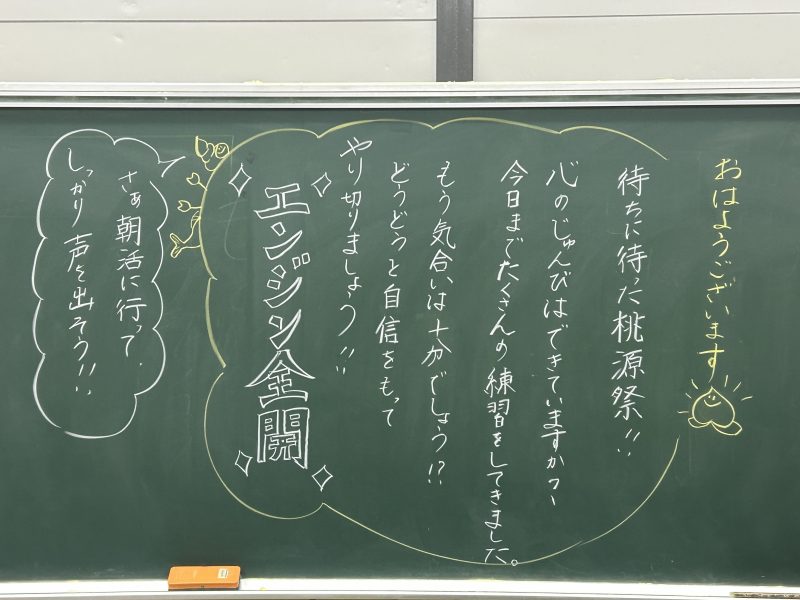 おはようございます
待ちに待った桃源祭!!
心のじゅんびはできていますかー
今日までたくさんの練習をしてきました。
もう気合いは十分でしょう!?
どうどうと自信をもって
やり切りましょう!!
エンジン全開
さぁ朝活に行って、
しっかり声を出そう!!